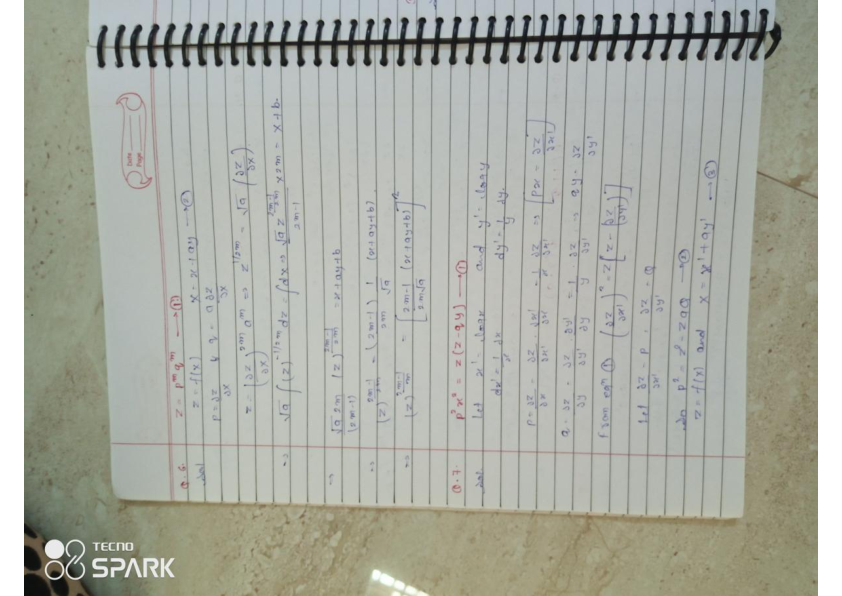 Date
Page
Q.6. z = p^m q^m → (1)
Sol z = f(x) x = x + ay → (2)
p = ∂z/∂x & q = a ∂z/∂x
z = (∂z/∂x)^2m a^m ⇒ z^1/2m = √a (∂z/∂x)
⇒ √a ∫(z)^-1/2m dz = ∫dx ⇒ √a z^(2m-1)/2m × 2m / 2m-1 = x + b
⇒ √a 2m/(2m-1) (z)^(2m-1)/2m = x + ay + b
⇒ (z)^(2m-1)/2m = (2m-1)/2m 1/√a (x + ay + b)
⇒ (z)^(2m-1)/m = [2m-1/2m√a (x + ay + b)]^2
Q.7. p²x² = z(z - qy) → (1)
Sol. Let x' = log x and y' = log y
dx' = 1/x dx dy' = 1/y dy.
p = ∂z/∂x = ∂z/∂x' · ∂x'/∂x = 1/x · ∂z/∂x' ⇒ [px = ∂z/∂x']
q = ∂z/∂y = ∂z/∂y' · ∂y'/∂y = 1/y · ∂z/∂y' ⇒ qy = ∂z/∂y'
from eqn (1) (∂z/∂x')² = z[z - (∂z/∂y')]
Let ∂z/∂x' = P, ∂z/∂y' = Q
So P² = z² - zQ → (2)
z = f(x) and x = x' + ay' → (3)
TECNO
SPARK